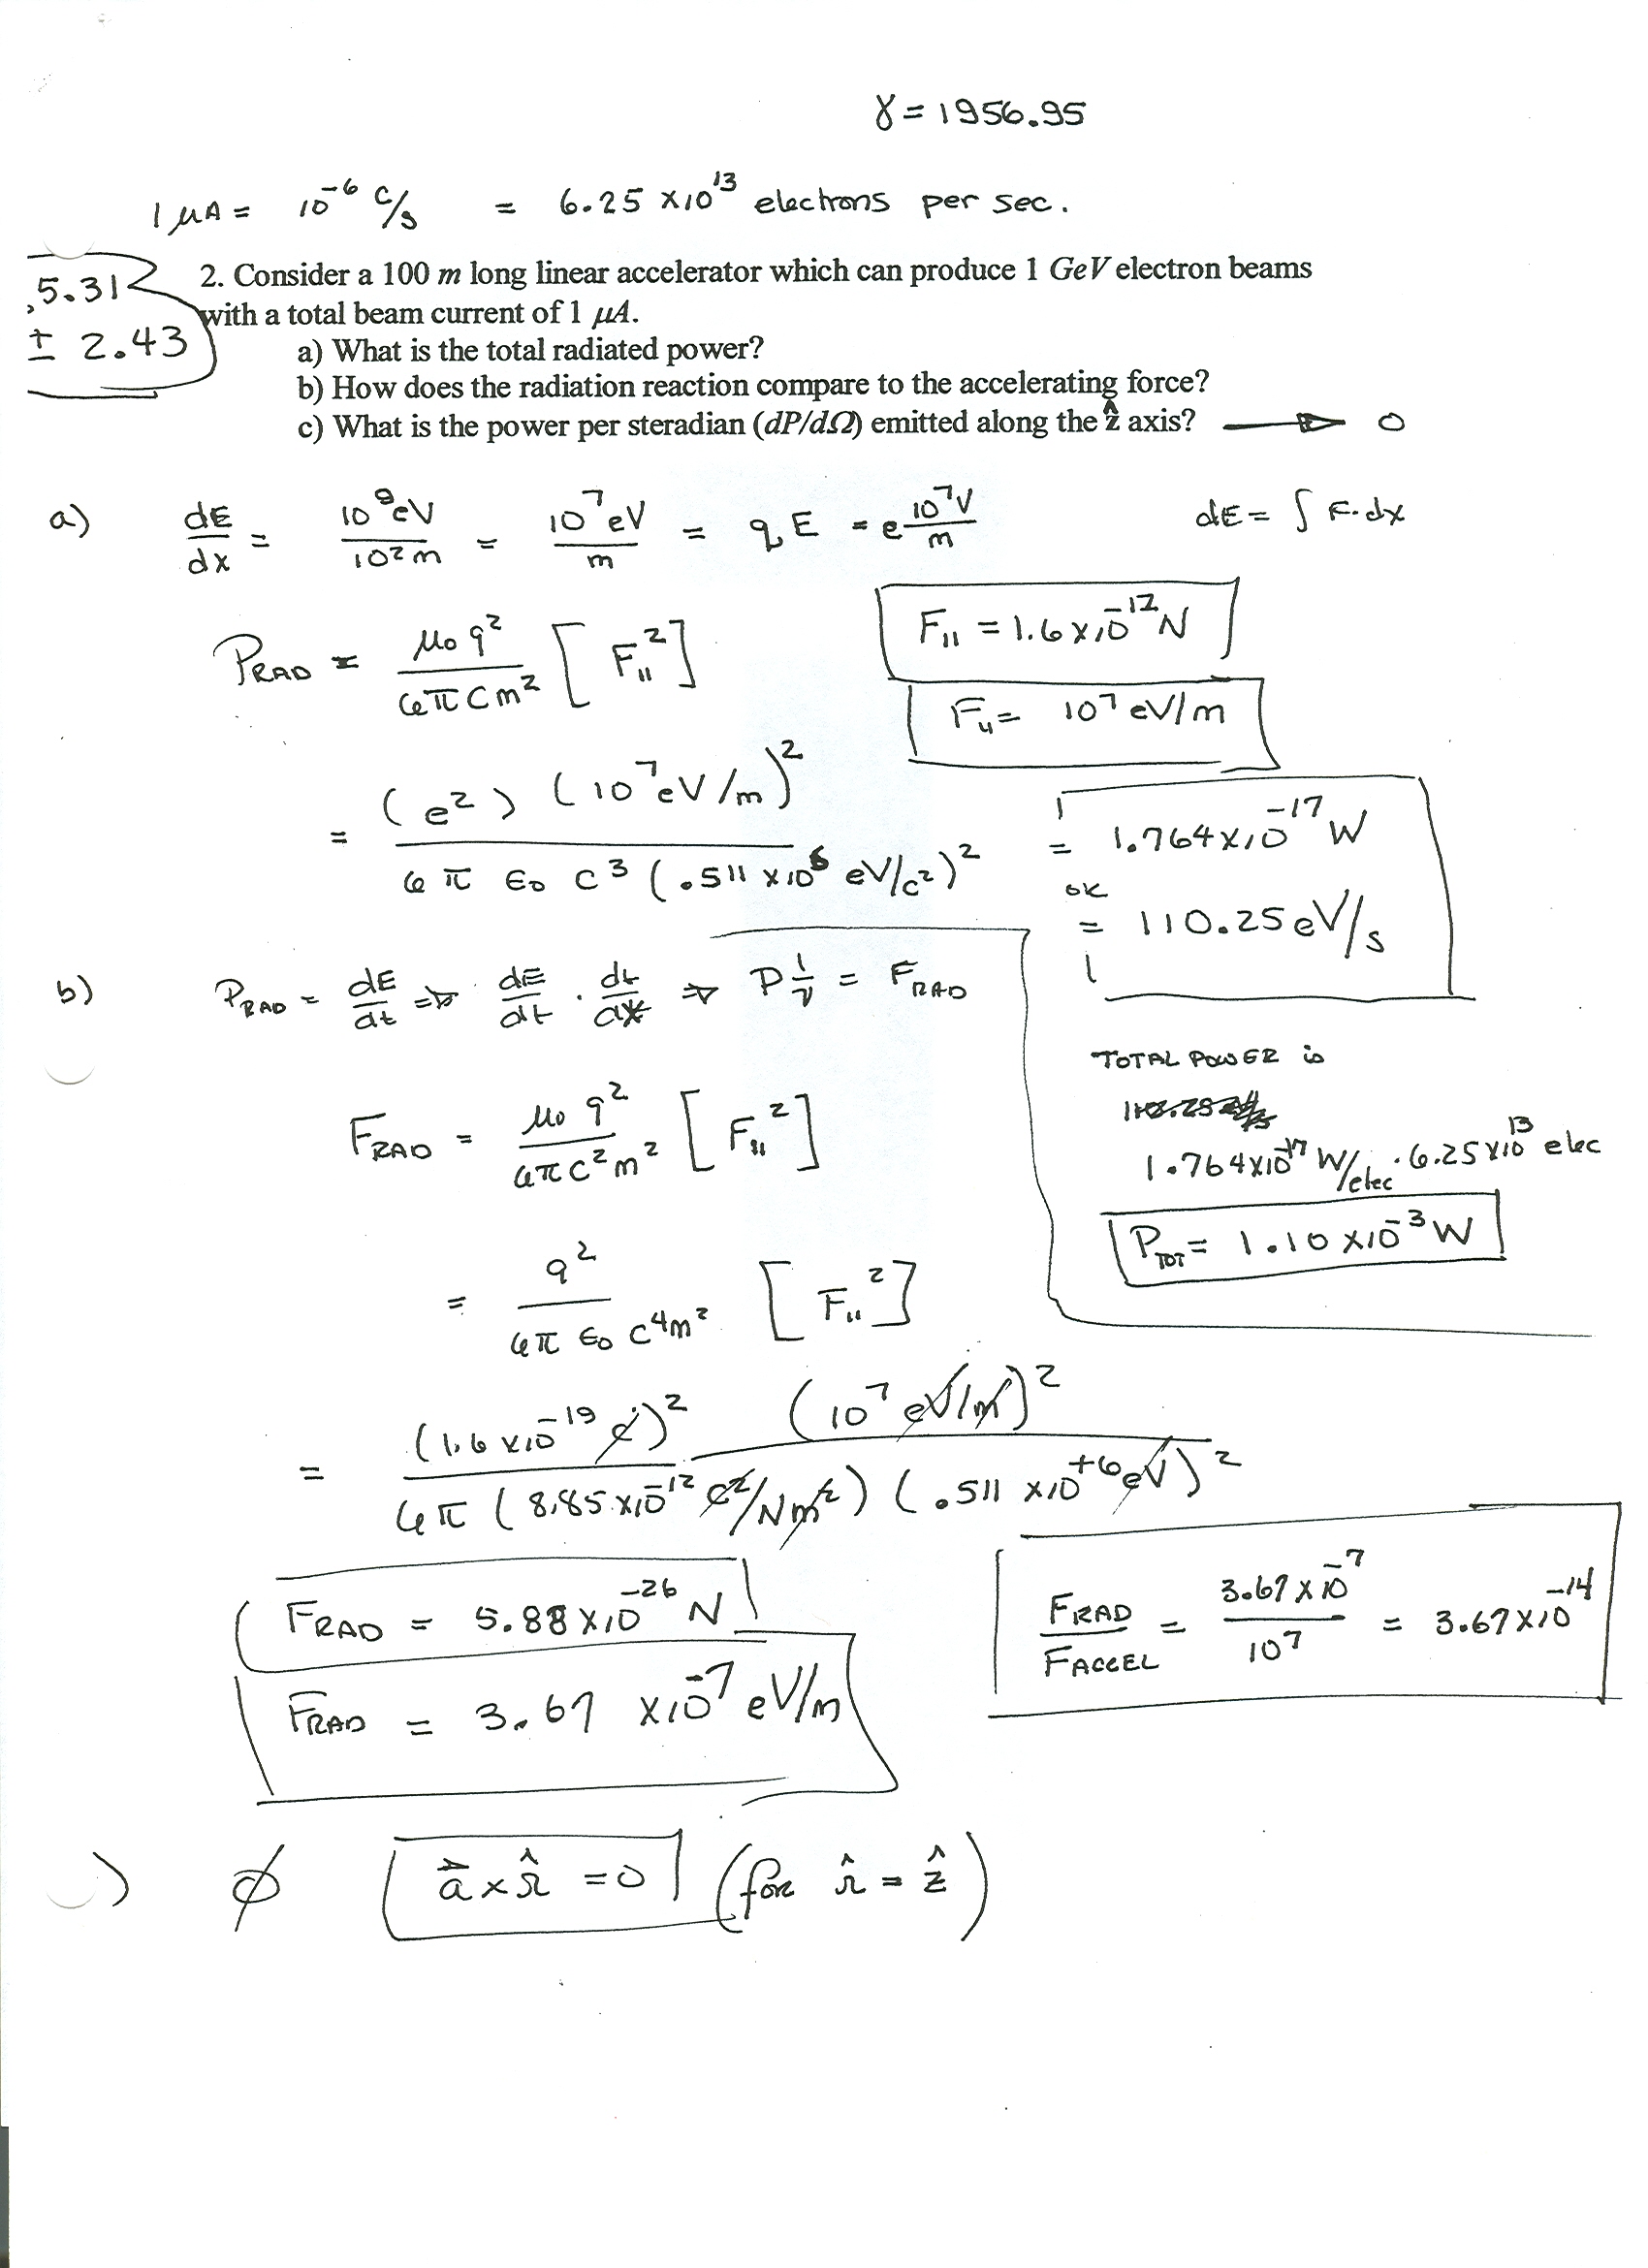 γ = 1956.95
1 μA = 10^-6 C/s = 6.25 x10^13 electrons per sec.
5.31
± 2.43
2. Consider a 100 m long linear accelerator which can produce 1 GeV electron beams
with a total beam current of 1 μA.
a) What is the total radiated power?
b) How does the radiation reaction compare to the accelerating force?
c) What is the power per steradian (dP/dΩ) emitted along the ẑ axis? → 0
a) dE/dx = 10^9 eV / 10^2 m = 10^7 eV / m = qE = e 10^7 V / m dE = ∫ F·dx
P_RAD = μ0 q^2 / 6πcm^2 [F_∥^2]
F_∥ = 1.6 x 10^-12 N
F_∥ = 10^7 eV/m
= (e^2) (10^7 eV/m)^2 / 6π ε0 c^3 (.511 x10^6 eV/c^2)^2
= 1.764 x 10^-17 W
OK
= 110.25 eV/s
b) P_RAD = dE/dt ⇒ dE/dt · dt/dx ⇒ P 1/v = F_RAD
TOTAL POWER is
F_RAD = μ0 q^2 / 6πc^2m^2 [F_∥^2]
1.764x10^-17 W/elec · 6.25 x10^13 elec
P_TOT = 1.10 x10^-3 W
= q^2 / 6π ε0 c^4m^2 [F_∥^2]
= (1.6 x10^-19 C)^2 (10^7 eV/m)^2 / 6π (8.85 x10^-12 C^2/Nm^2) (.511 x10^+6 eV)^2
F_RAD = 5.88 x10^-26 N
F_RAD = 3.67 x10^-7 eV/m
F_RAD / F_ACCEL = 3.67 x 10^-7 / 10^7 = 3.67 x10^-14
) ∅ a⃗ x r̂ = 0 (for r̂ = ẑ)